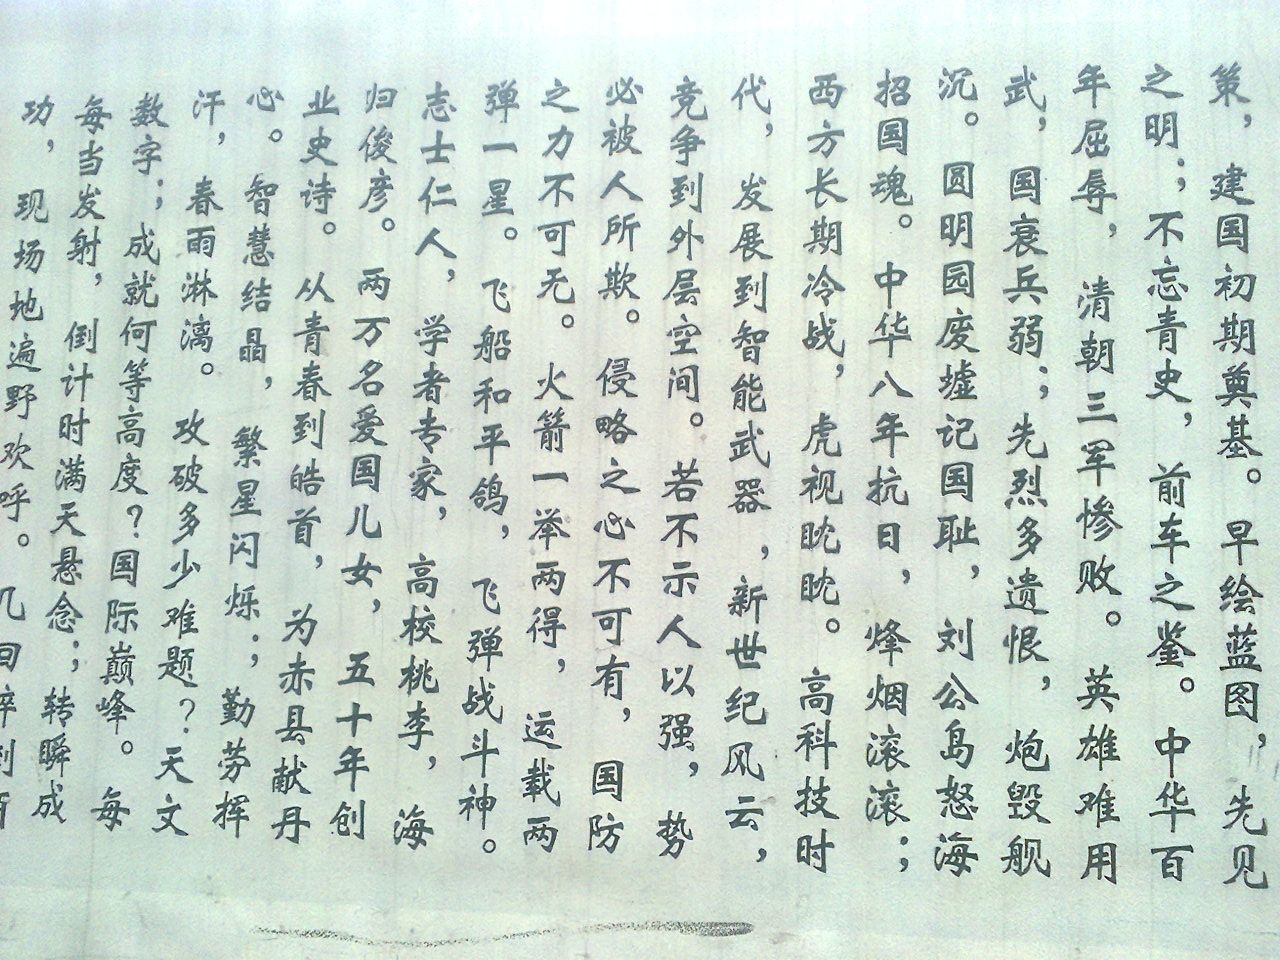 策，建国初期奠基。早绘蓝图，先见
之明；不忘青史，前车之鉴。中华百
年屈辱，清朝三军惨败。英雄难用
武，国衰兵弱；先烈多遗恨，炮毁舰
沉。圆明园废墟记国耻，刘公岛怒海
招国魂。中华八年抗日，烽烟滚滚；
西方长期冷战，虎视眈眈。高科技时
代，发展到智能武器，新世纪风云，
竞争到外层空间。若不示人以强，势
必被人所欺。侵略之心不可有，国防
之力不可无。火箭一举两得，运载两
弹一星。飞船和平鸽，飞弹战斗神。
志士仁人，学者专家，高校桃李，海
归俊彦。两万名爱国儿女，五十年创
业史诗。从青春到皓首，为赤县献丹
心。智慧结晶，繁星闪烁；勤劳挥
汗，春雨淋漓。攻破多少难题？天文
数字；成就何等高度？国际巅峰。每
每当发射，倒计时满天悬念；转瞬成
功，现场地遍野欢呼。